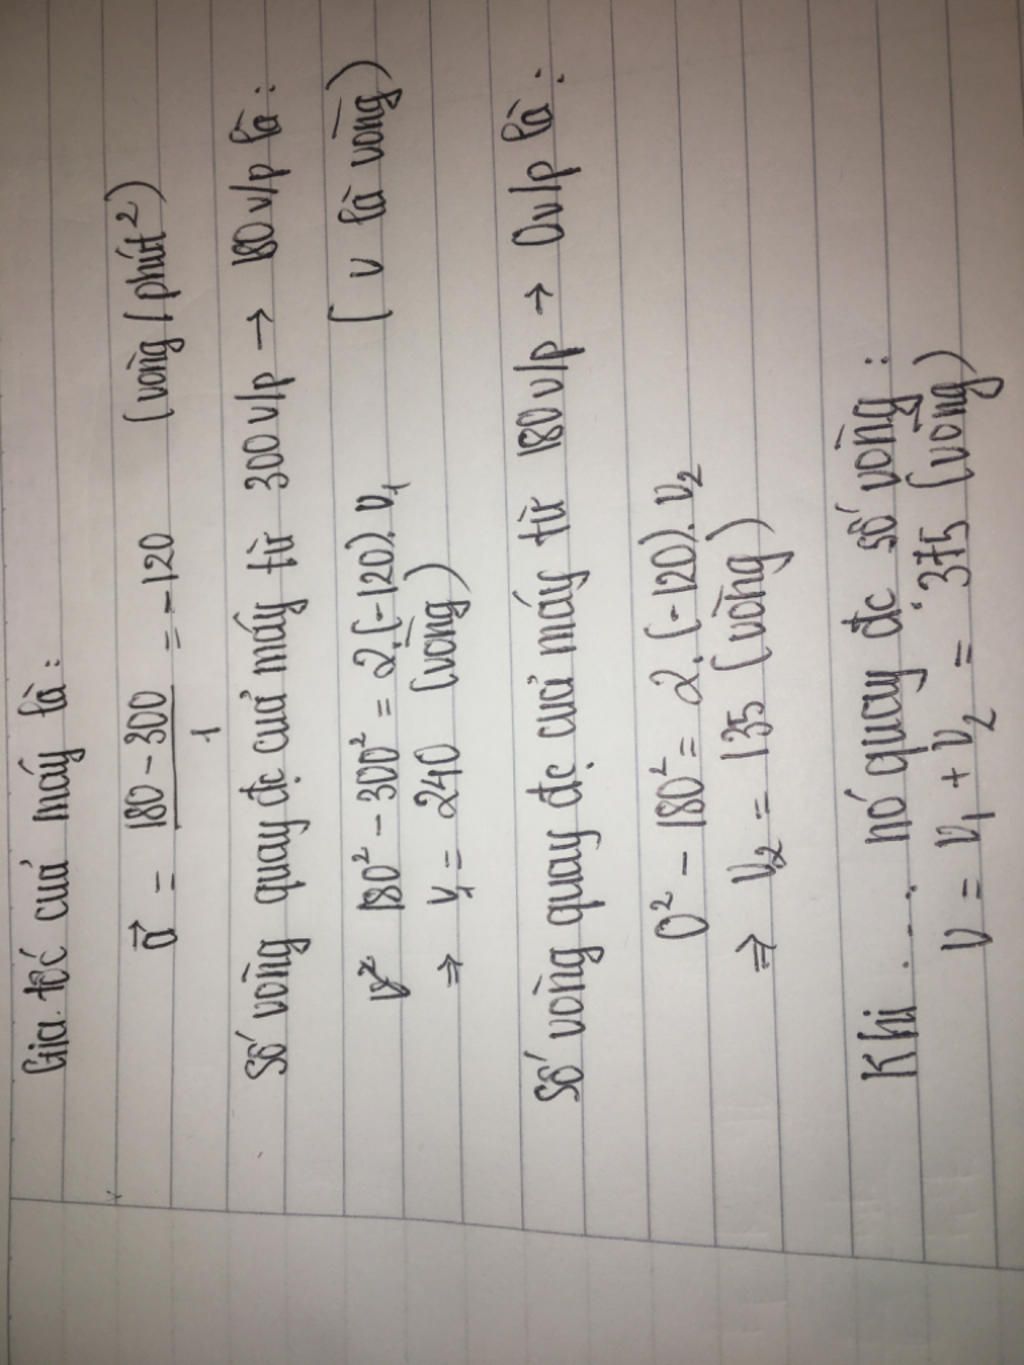 Gia tốc của máy là:
a⃗ = (180 - 300)/1 = -120 (vòng / phút²)
Số vòng quay đc của máy từ 300 v/p → 180 v/p là:
180² - 300² = 2.(-120).v₁ ( v là vòng)
⇒ v₁ = 240 (vòng)
Số vòng quay đc của máy từ 180 v/p → 0v/p là:
0² - 180² = 2.(-120).v₂
⇒ v₂ = 135 (vòng)
Khi .... nó quay đc số vòng:
v = v₁ + v₂ = 375 (vòng)